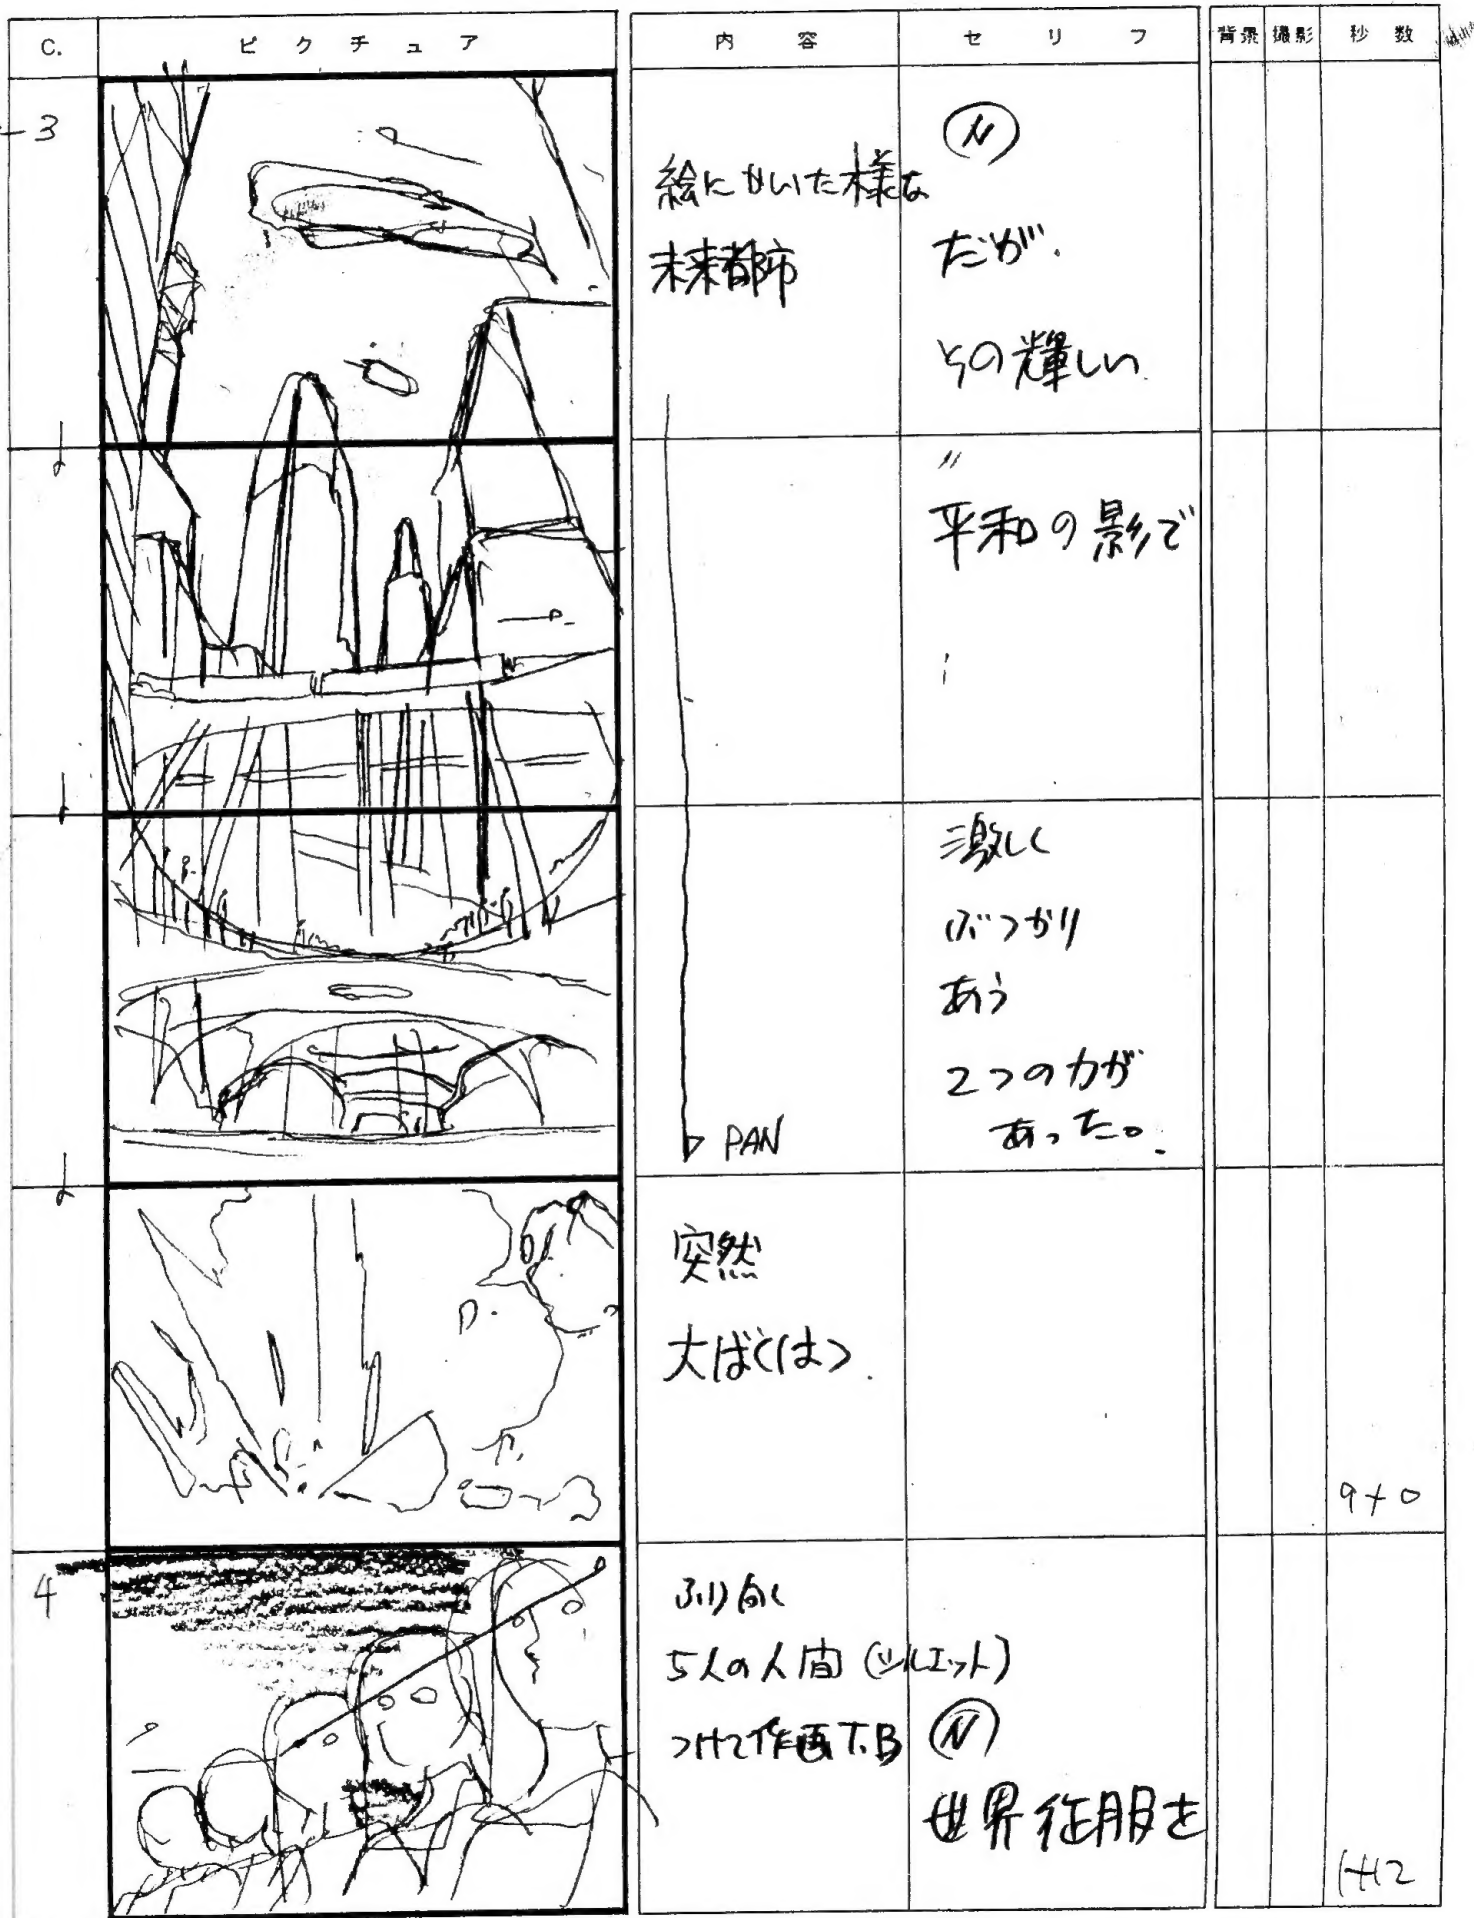 C.
ピクチュア
内容
セリフ
背景
撮影
秒数
3
絵にかいた様な
未来都市
N
だが.
その輝しい
〃
平和の影で
激しく
ぶつかり
あう
2つの力が
あった。
PAN
突然
大ばくはつ
9+0
4
ふり向く
5人の人間(シルエット)
つけて作画T.B
N
世界征服を
1+12